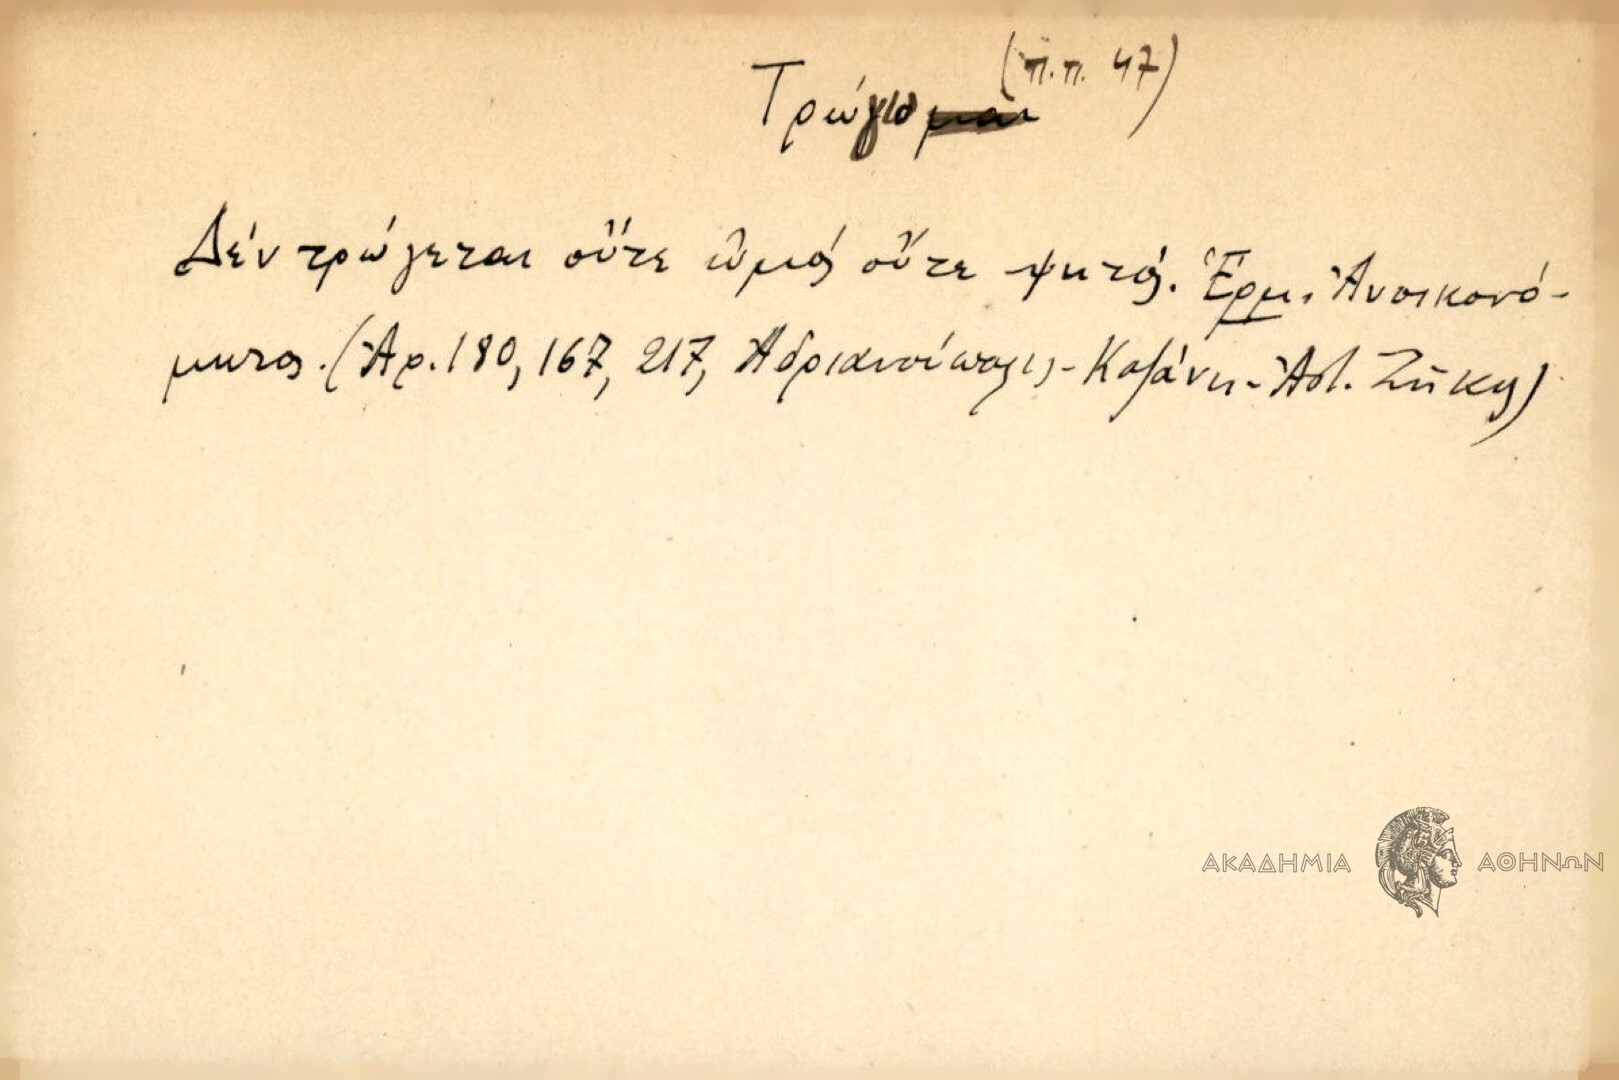 Τρώγω (π.π. 47)
Δέν τρώγεται οὔτε ὠμός οὔτε ψητός. Ἑρμ. Ἀνοικονό-
μητος. (Ἀρ. 180, 167, 217, Ἀδριανούπολις - Κοζάνη - Ἀθ. Ζήκος)
ΑΚΑΔΗΜΙΑ ΑΘΗΝΩΝ